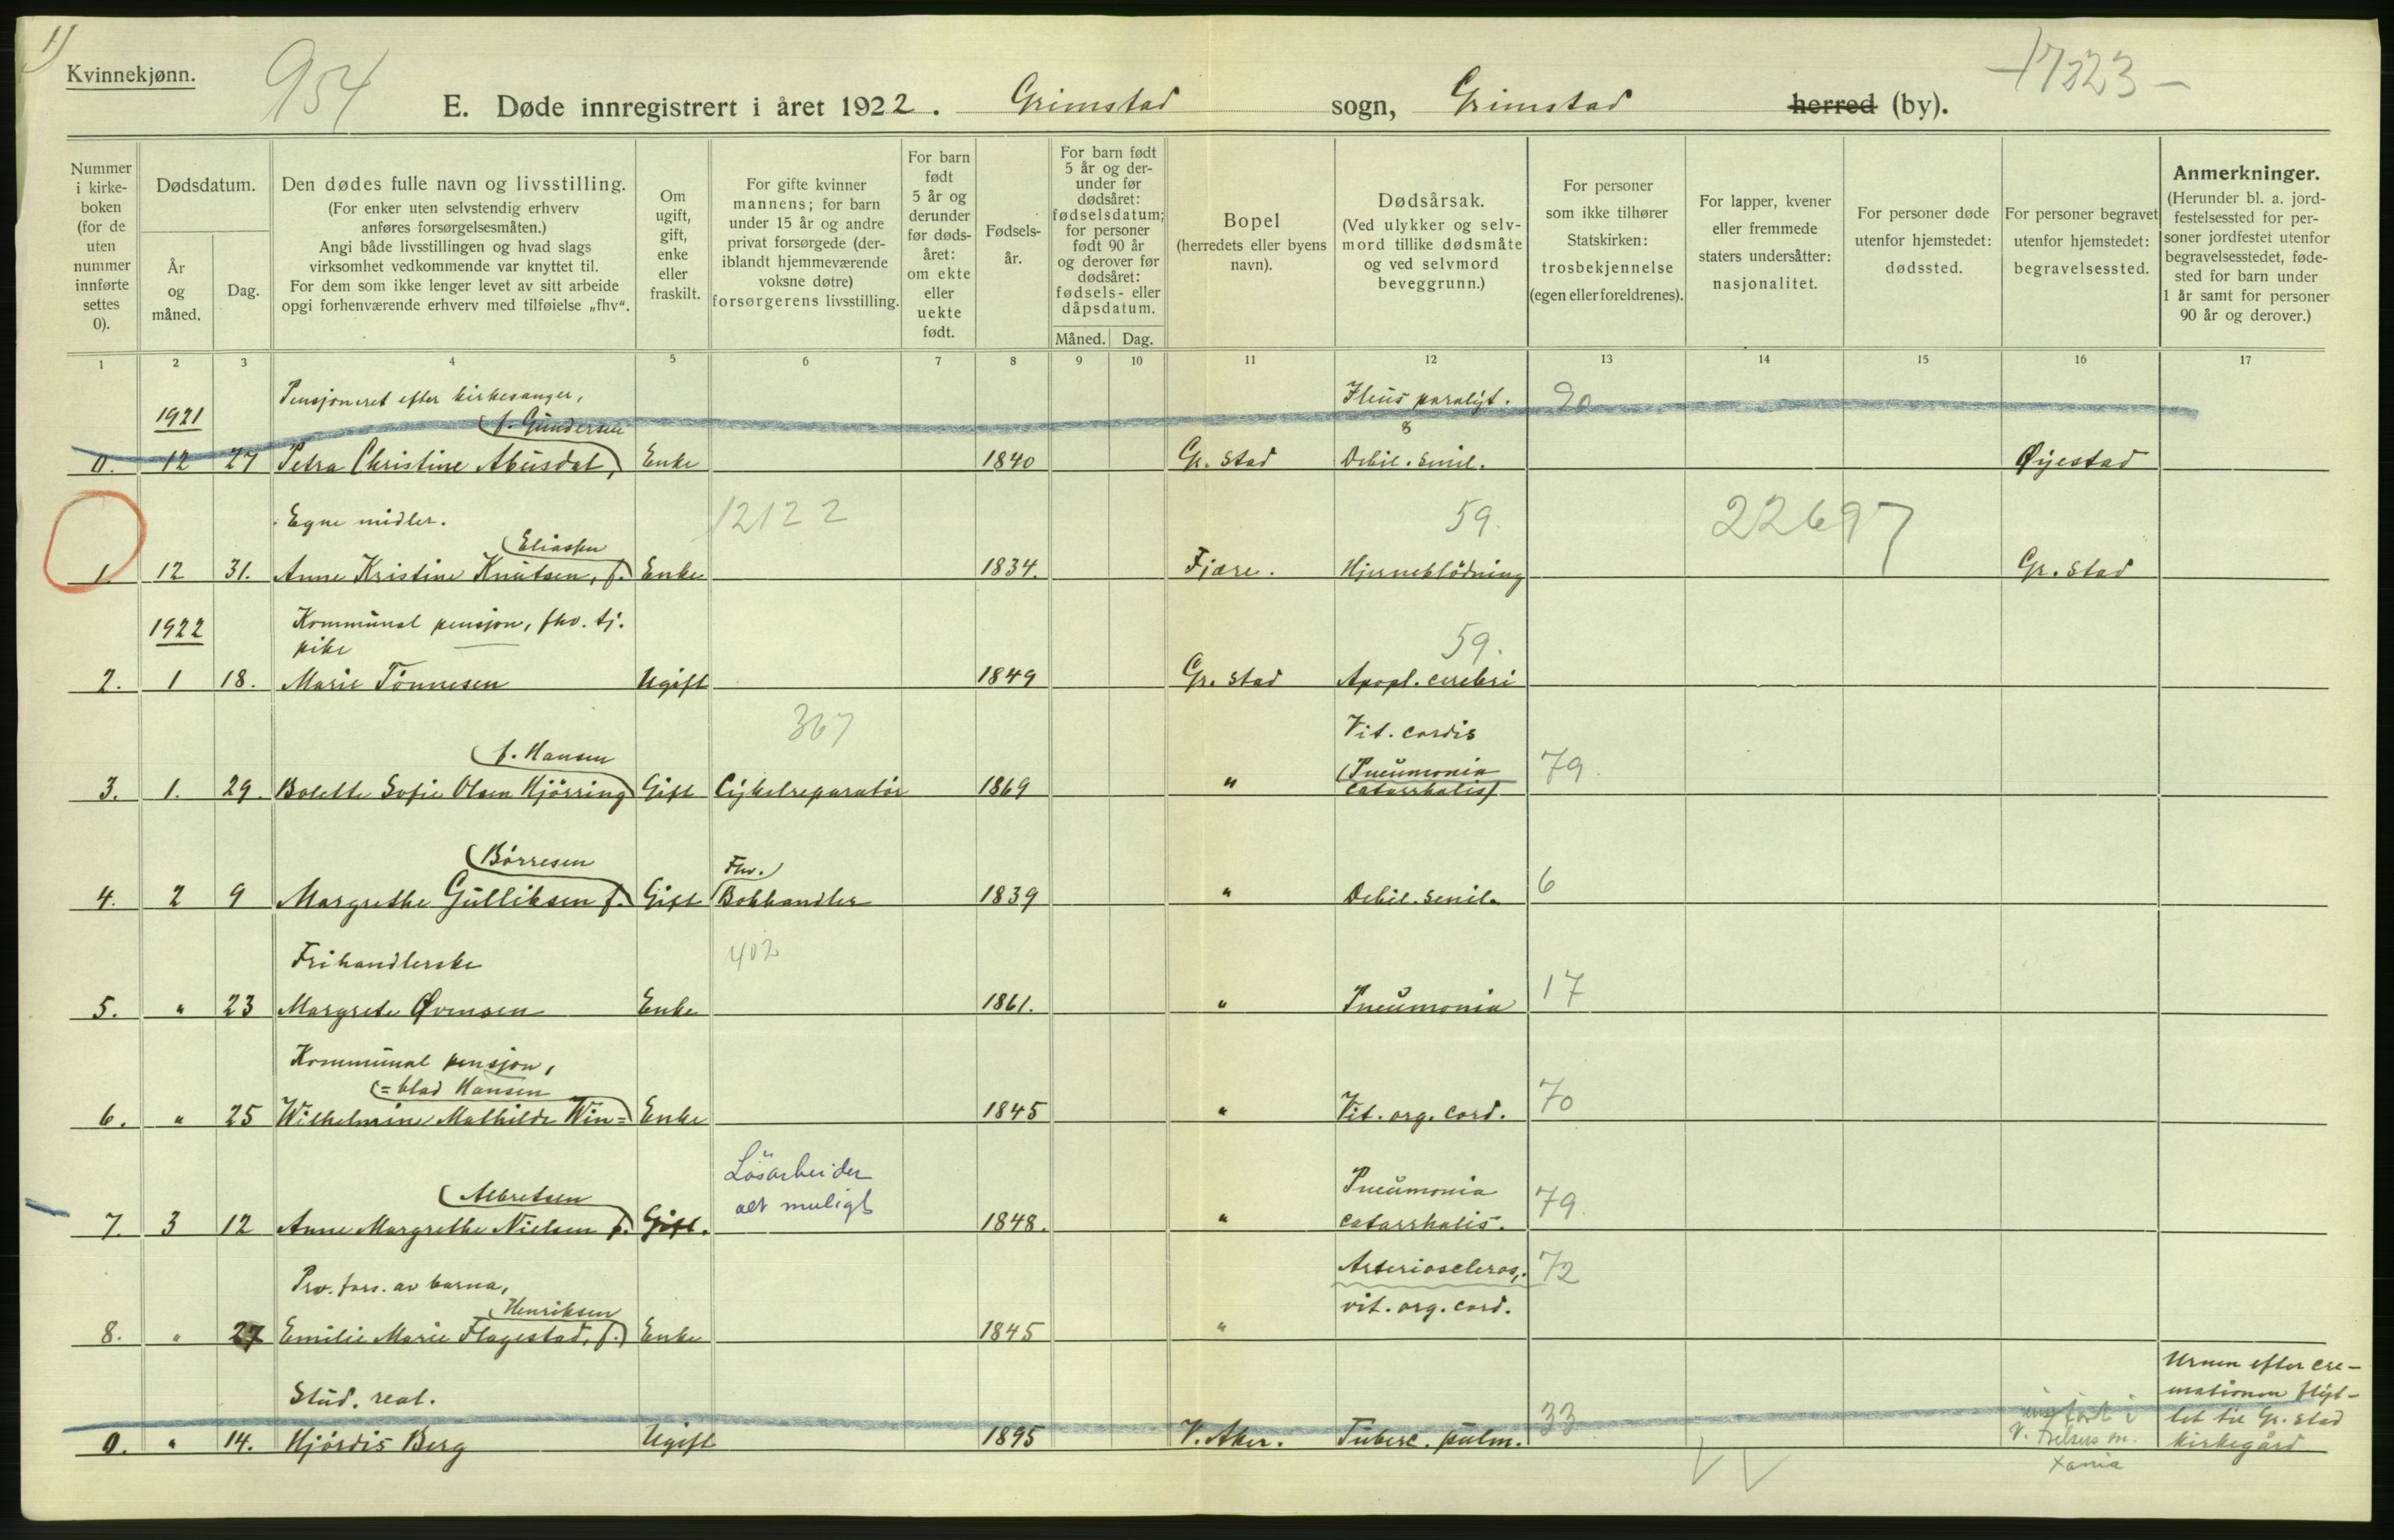 1)
Kvinnekjønn.
954
E. Døde innregistrert i året 1922. Grimstad sogn, Grimstad herred (by).
17323 —
Nummer i kirke- boken (for de uten nummer innførte settes 0).
Dødsdatum.
År og måned.
Dag.
Den dødes fulle navn og livsstilling.
(For enker uten selvstendig erhverv anføres forsørgelsesmåten.)
Angi både livsstillingen og hvad slags virksomhet vedkommende var knyttet til.
For dem som ikke lenger levet av sitt arbeide opgi forhenværende erhverv med tilføielse „fhv“.
Om ugift, gift, enke eller fraskilt.
For gifte kvinner mannens; for barn under 15 år og andre privat forsørgede (der- iblandt hjemmeværende voksne døtre) forsørgerens livsstilling.
For barn født 5 år og derunder før døds- året: om ekte eller uekte født.
Fødsels- år.
For barn født 5 år og der- under før dødsåret: fødselsdatum; for personer født 90 år og derover før dødsåret: fødsels- eller dåpsdatum.
Måned. Dag.
Bopel (herredets eller byens navn).
Dødsårsak. (Ved ulykker og selv- mord tillike dødsmåte og ved selvmord beveggrunn.)
For personer som ikke tilhører Statskirken: trosbekjennelse (egen eller foreldrenes).
For lapper, kvener eller fremmede staters undersåtter: nasjonalitet.
For personer døde utenfor hjemstedet: dødssted.
For personer begravet utenfor hjemstedet: begravelsessted.
Anmerkninger. (Herunder bl. a. jord- festelsessted for per- soner jordfestet utenfor begravelsesstedet, føde- sted for barn under 1 år samt for personer 90 år og derover.)
1 2 3 4 5 6 7 8 9 10 11 12 13 14 15 16 17
Pensjoneret efter kirkesanger, Ileus paralyt. 90
1921 f. Gundersen 8
0. 12 27 Petra Christine Abusdal, Enke 1840 Gr.stad Debil. senil. Øyestad
Egne midler. 12122 59. 22697
Eliassen
1. 12 31. Anne Kristine Knutsen, f. Enke 1834. Fjære. Hjerneblödning Gr.stad
1922 Kommunal pensjon, fhv. tj.
pike 59.
2. 1 18. Marie Tönnesen Ugift 1849 Gr.stad Apopl. cerebri
367 Vit. cordis
(f. Hansen (Pneumonia 79.
3. 1. 29. Bolette Sofie Olsen Hjörring) Gift Cykelreparatör 1869 " catarrhalis)
(Börresen Fhv. 6
4. 2 9 Margrethe Gulliksen f. Gift Bokhandler 1839 " Debil. senil.
Frihandlerske 402 17
5. " 23 Margrete Øvensen Enke 1861. " Pneumonia
Kommunal pensjon,
(= blad Hansen 70
6. " 25 Wilhelmine Mathilde Win= Enke 1845 " Vit. org. cord.
Lösarbeider Pneumonia
(Albretsen alt muligt 79.
7. 3 12 Anne Margrethe Nielsen f. Gift. 1848. " catarrhalis.
Arterioscleros,. 72
Prv. fors. av barna,
(Henriksen vit. org. cord.
8. " 27 Emilie Marie Flagestad, f.) Enke 1845 "
Urnen efter cre-
Stud. real. mationen flyt-
33 tet til Gr.stad
0. " 14. Hjördis Berg Ugift 1895 V. Aker. Tuberc. pulm. V. kirkegård